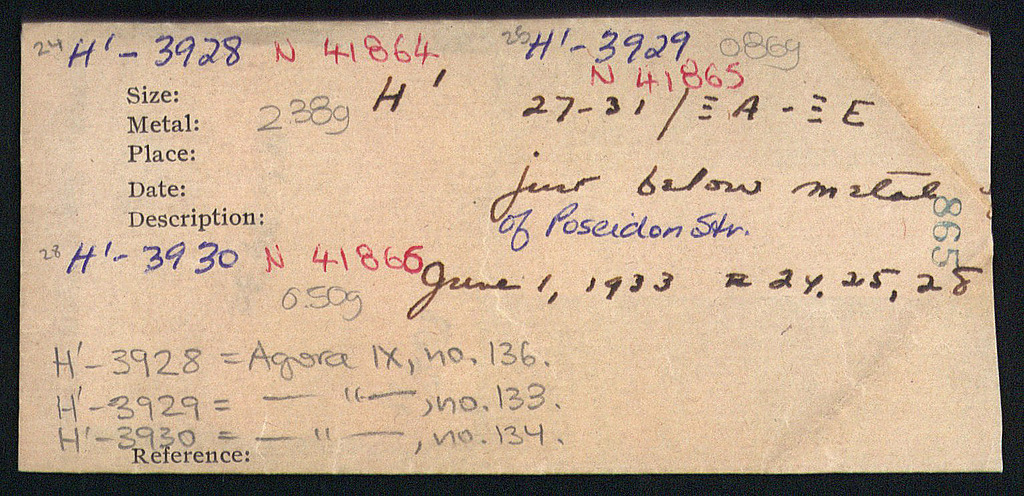 24 H'-3928 N 41864
25 H'-3929 0.86g
N 41865
Size:
H'
27-31/ΞA-ΞE
Metal:
2.38g
Place:
just below metal
Date:
Description:
of Poseidon Str.
865
28 H'-3930 N 41866
June 1, 1933 = 24, 25, 28
0.50g
H'-3928 = Agora IX, no. 136.
H'-3929 = — " — , no. 133.
H'-3930 = — " — , no. 134.
Reference: